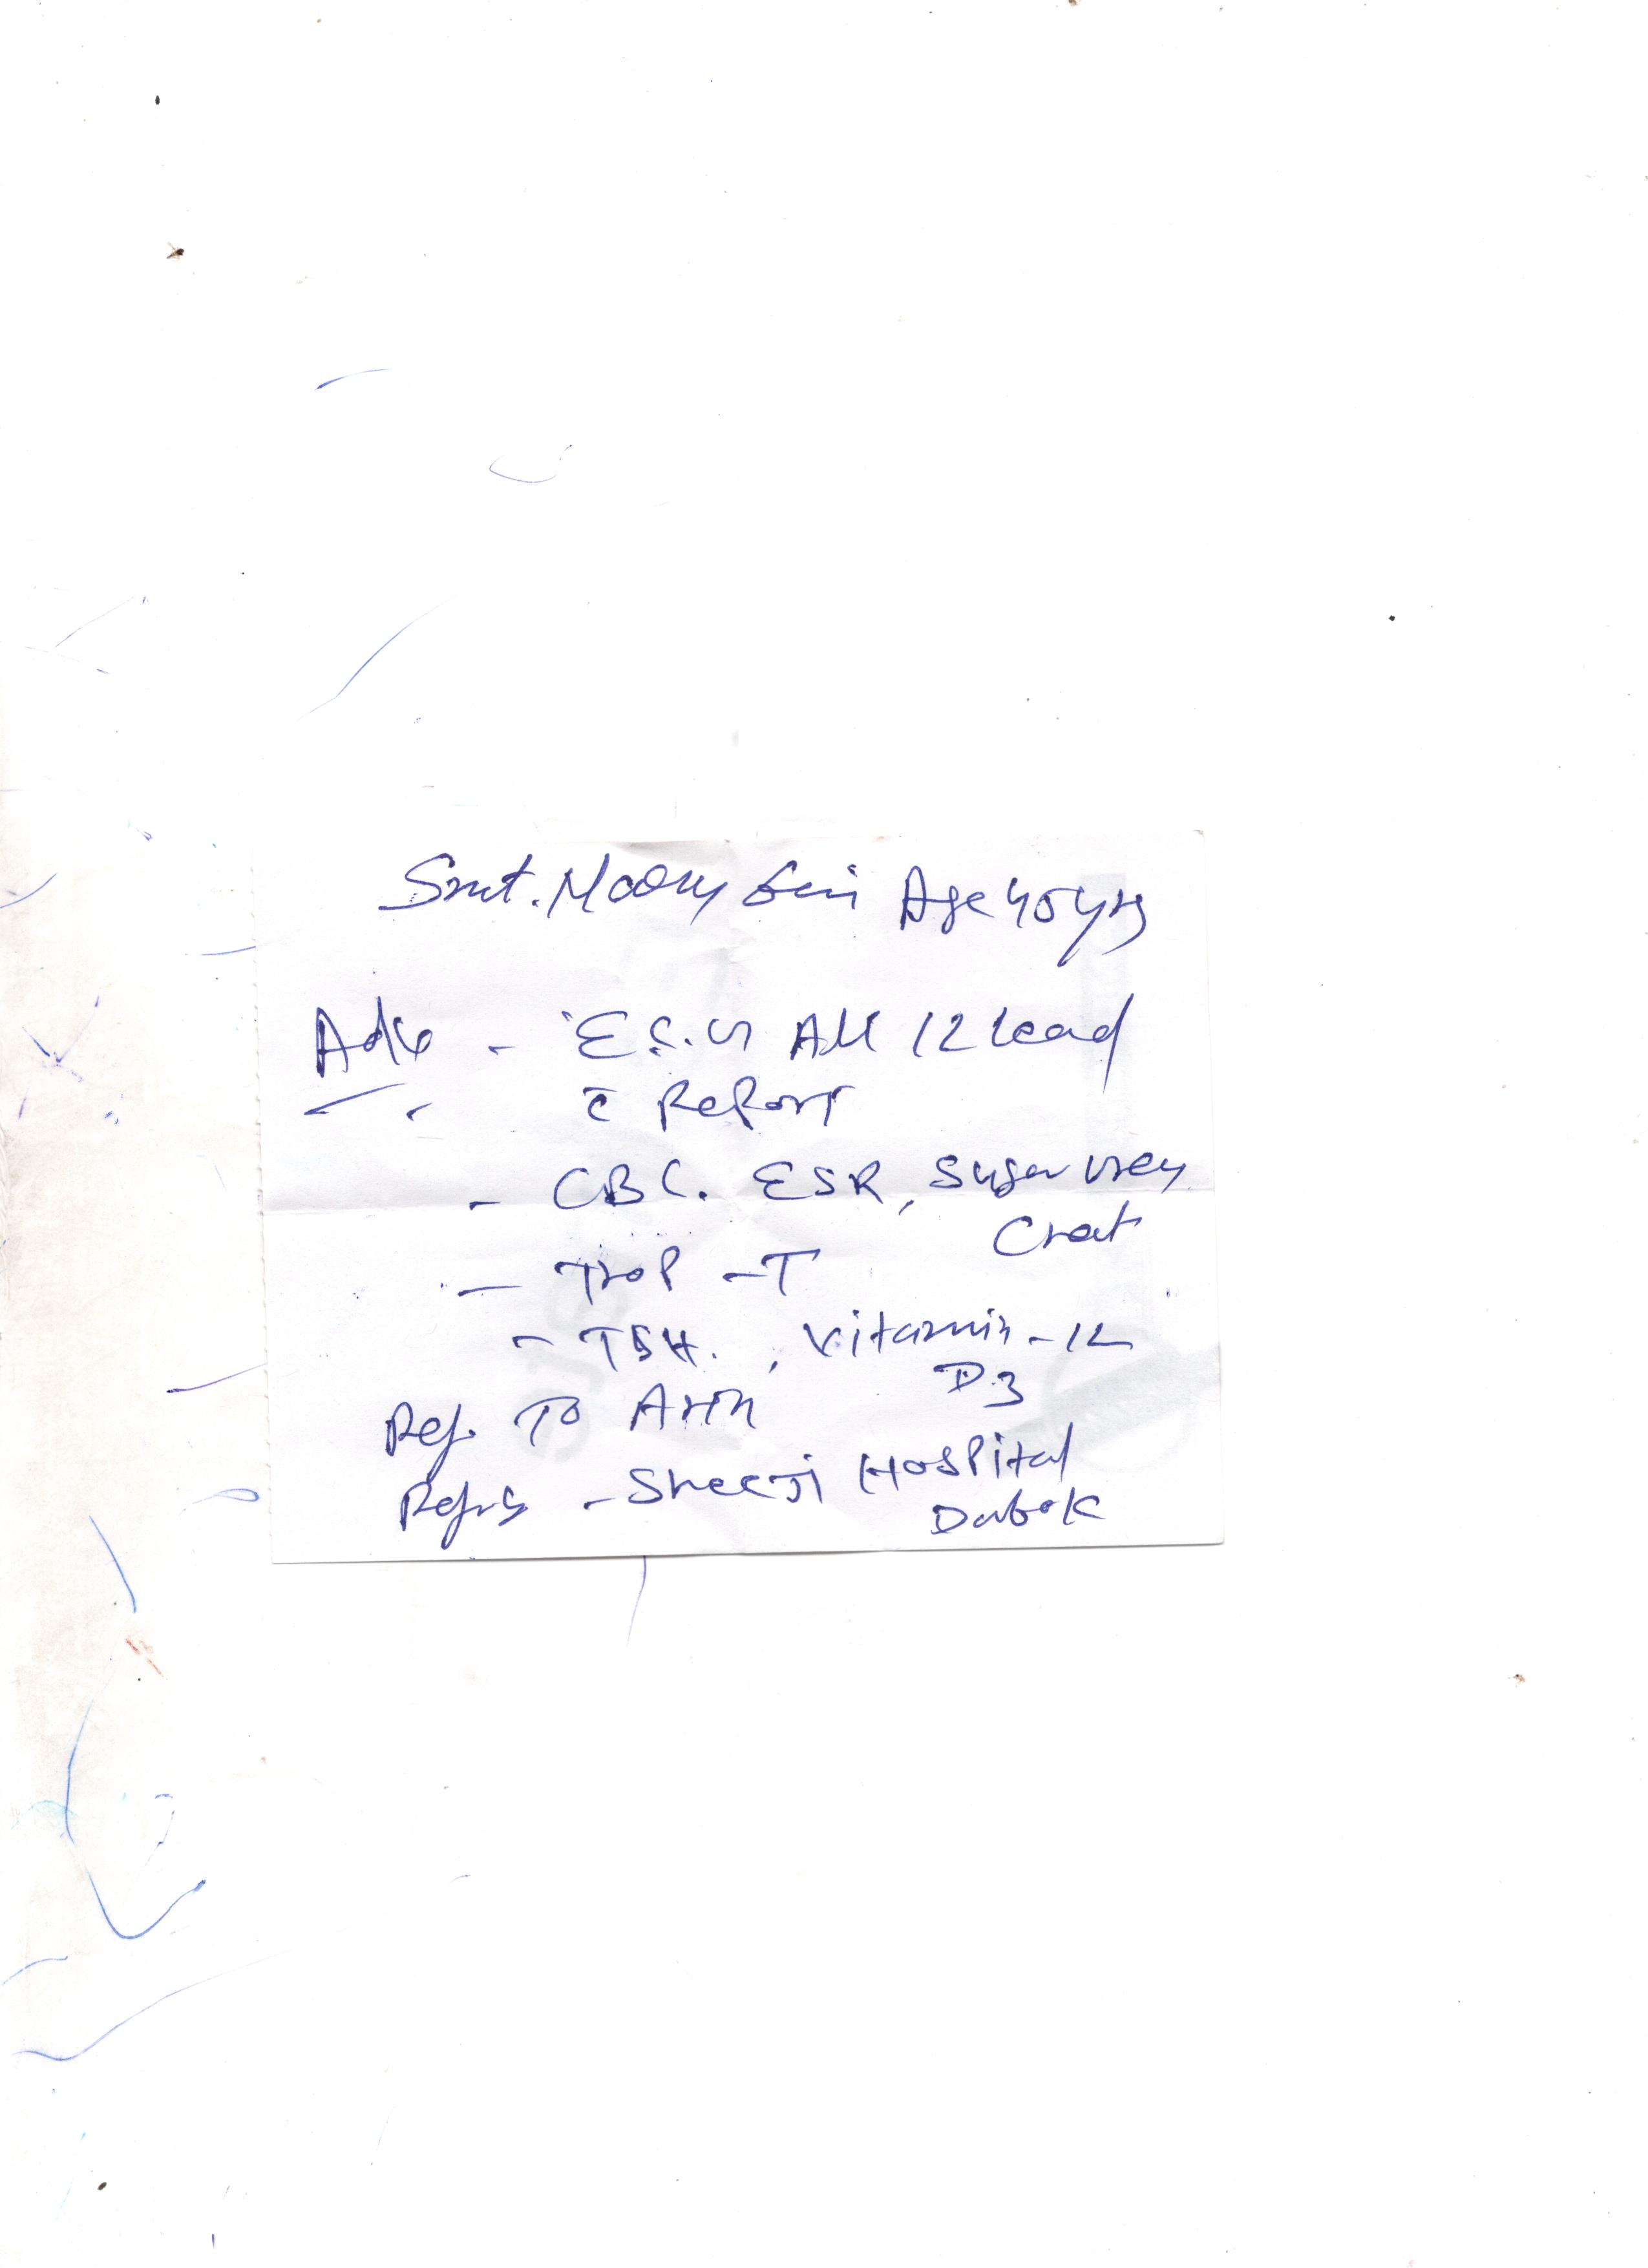 Smt. Age 45 yrs
Adv - E.C.G All 12 Lead
c̄ Report
- CBC. ESR, Sugar Urea
Creat
- Trop - T
- TSH. , Vitamin - 12
D3
Ref. To
- Shreeji Hospital
Dabok